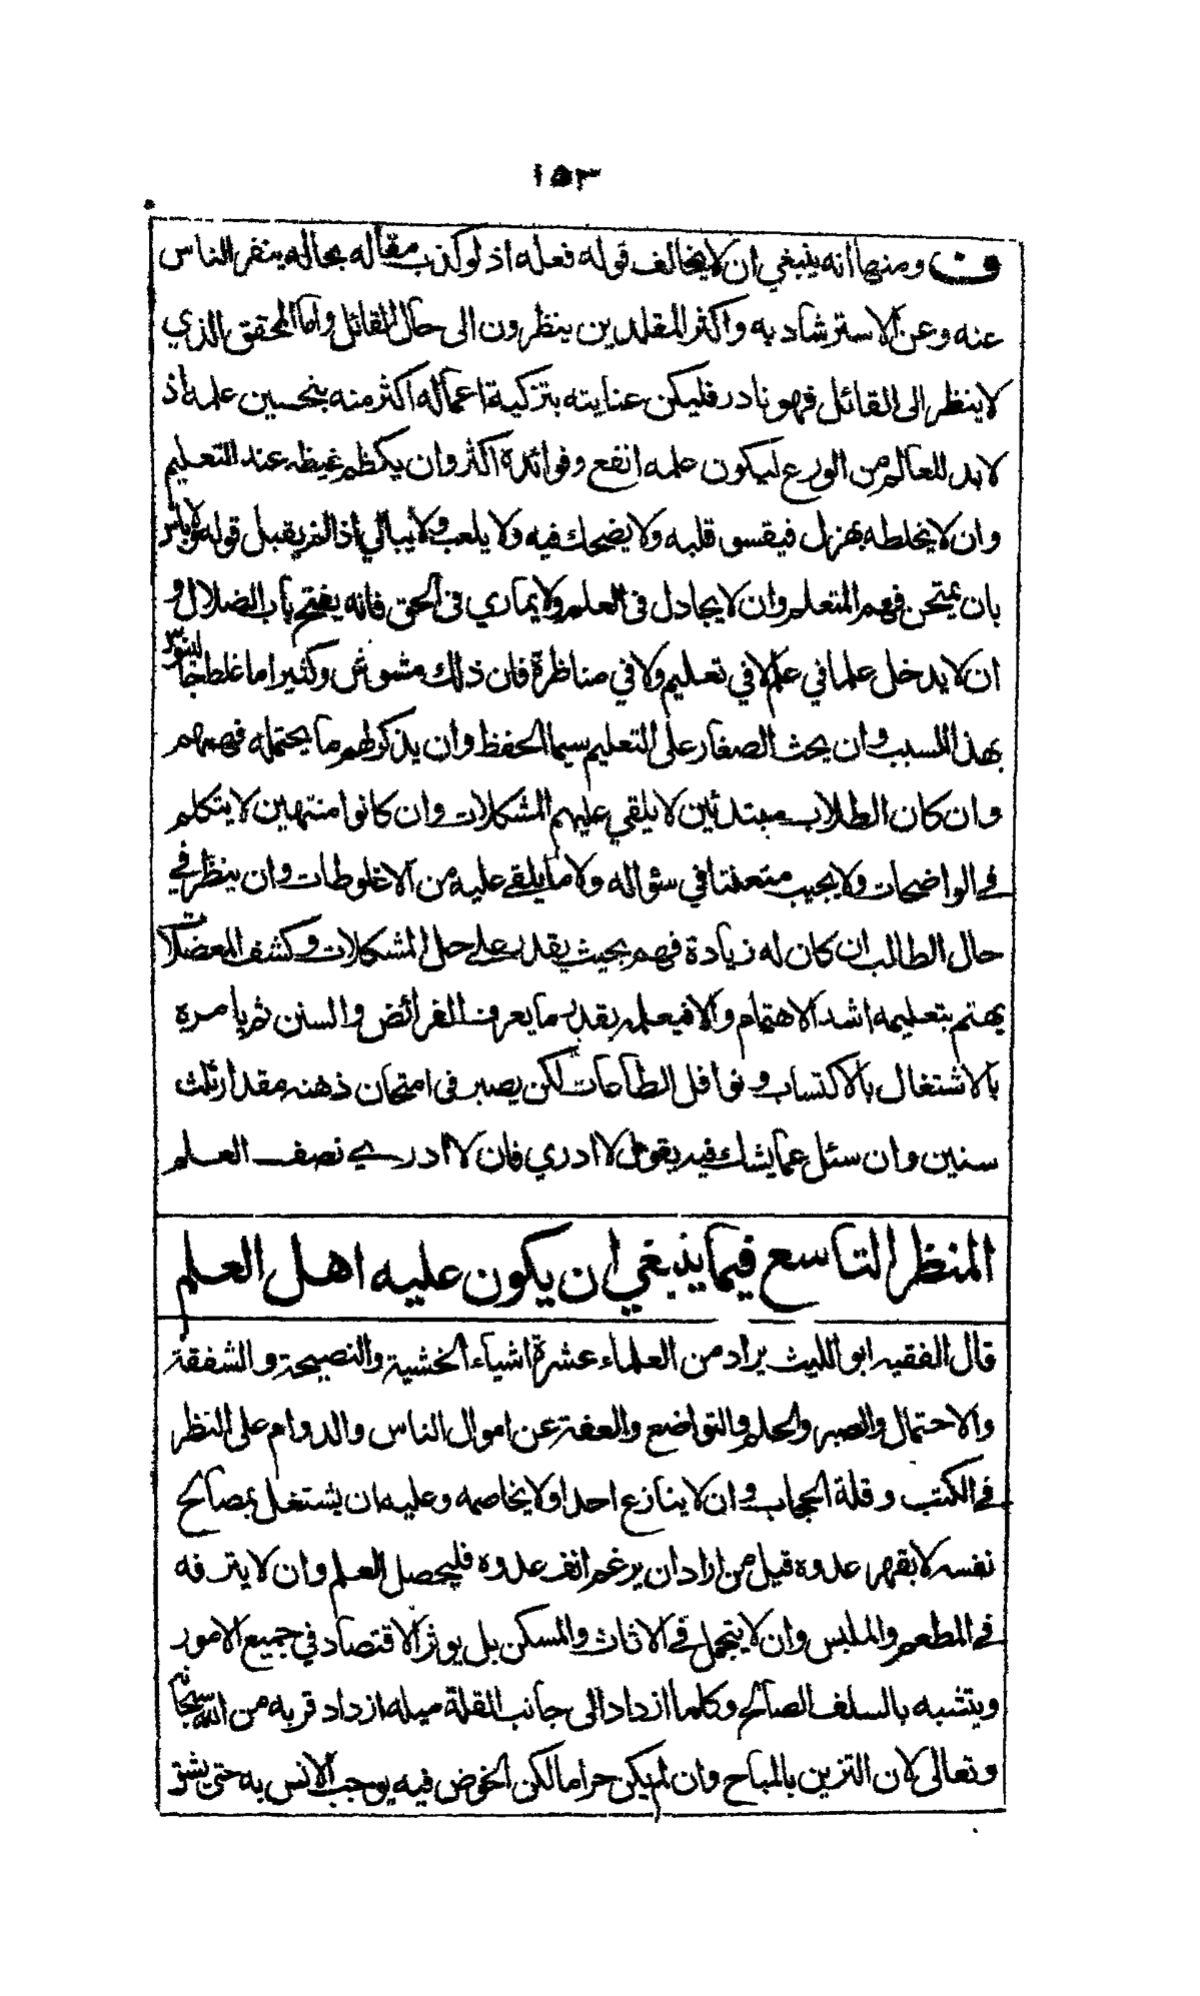 ١٥٣
ف ومنها انه ينبغي ان لا يخالف قوله فعله اذ لو كذب مقاله بحاله ينفر الناس
عنه وعن الاسترشاد به واكثر المقلدين ينظرون الى حال القائل واما المحقق الذي
لا ينظر الى القائل فهو نادر فليكن عنايته بتزكية اعماله اكثر منه بتحسين علمه اذ
لا بد للعالم من الورع ليكون علمه انفع وفوائده اكثر وان يكظم غيظه عند التعليم
وان لا يخلطه بهزل فيقسو قلبه ولا يضحك فيه ولا يلعب ولا يبالي اذا لم يقبل قوله ولا باس
بان يمتحن فهم المتعلم وان لا يجادل في العلم ولا يماري في الحق فانه يفتح باب الضلال و
ان لا يدخل علما في علم لا في تعليم ولا في مناظرة فان ذلك مشوش وكثيرا ما غلط جالينوس
بهذا السبب وان يحث الصغار على التعليم سيما الحفظ وان يذكر لهم ما يحتمله فهمهم
وان كان الطلاب مبتدئين لا يلقي عليهم المشكلات وان كانوا منتهين لا يتكلم
في الواضحات ولا يجيب متعنتا في سؤاله ولا ما يلقى عليه من الاغلوطات وان ينظر في
حال الطالب ان كان له زيادة فهم بحيث يقدر على حل المشكلات وكشف المعضلات
يهتم بتعليمه اشد الاهتمام والا فيعلم بقدر ما يعرف الفرائض والسنن ثم يامره
بالاشتغال بالاكتساب ونوافل الطاعات لكن يصبر في امتحان ذهنه مقدار ثلث
سنين وان سئل عما يشك فيه يقول لا ادري فان لا ادري نصف العلم
المنظر التاسع فيما ينبغي ان يكون عليه اهل العلم
قال الفقيه ابو الليث يراد من العلماء عشرة اشياء الخشية والنصيحة والشفقة
والاحتمال والصبر والحلم والتواضع والعفة عن اموال الناس والدوام على النظر
في الكتب وقلة الحجاب وان لا ينازع احدا ولا يخاصمه وعليه ان يشتغل بمصالح
نفسه لا بقهر عدوه قيل من اراد ان يرغم انف عدوه فليحصل العلم وان لا يترفه
في المطعم والملبس وان لا يتجمل في الاثاث والمسكن بل يوثر الاقتصاد في جميع الامور
ويتشبه بالسلف الصالح وكلما ازداد الى جانب القلة ميله ازداد قربه من الله سبحانه
وتعالى لان التزين بالمباح وان لم يكن حراما لكن الخوض فيه يوجب الانس به حتى يشق